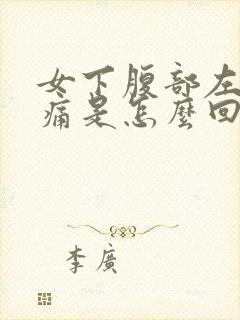 女下腹部左
痛是怎麼回
李廣